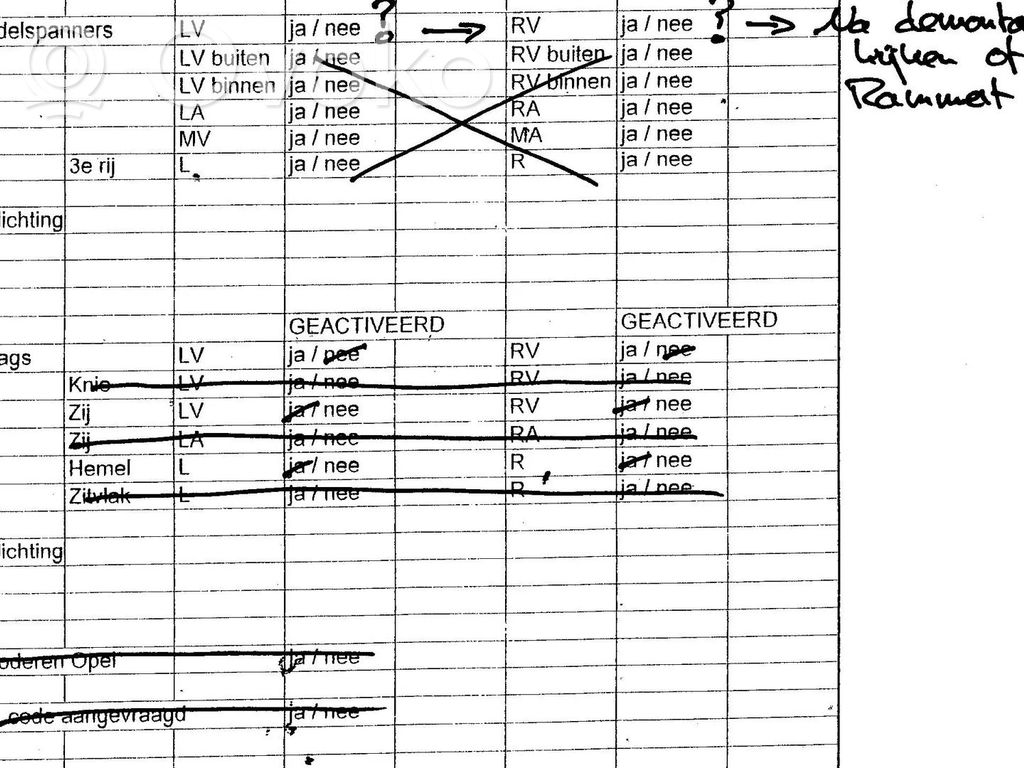 delspanners LV ja / nee ? → RV ja / nee ? → Na demonta
LV buiten ja / nee RV buiten ja / nee kijken of
LV binnen ja / nee RV binnen ja / nee Rammert
LA ja / nee RA ja / nee
MV ja / nee MA ja / nee
3e rij L ja / nee R ja / nee
lichting
GEACTIVEERD GEACTIVEERD
ags LV ja / nee RV ja / nee
Knie LV ja / nee RV ja / nee
Zij LV ja / nee RV ja / nee
Zij LA ja / nee RA ja / nee
Hemel L ja / nee R ja / nee
Zitvlak L ja / nee R ja / nee
lichting
oderen Opel ja / nee
code aangevraagd ja / nee